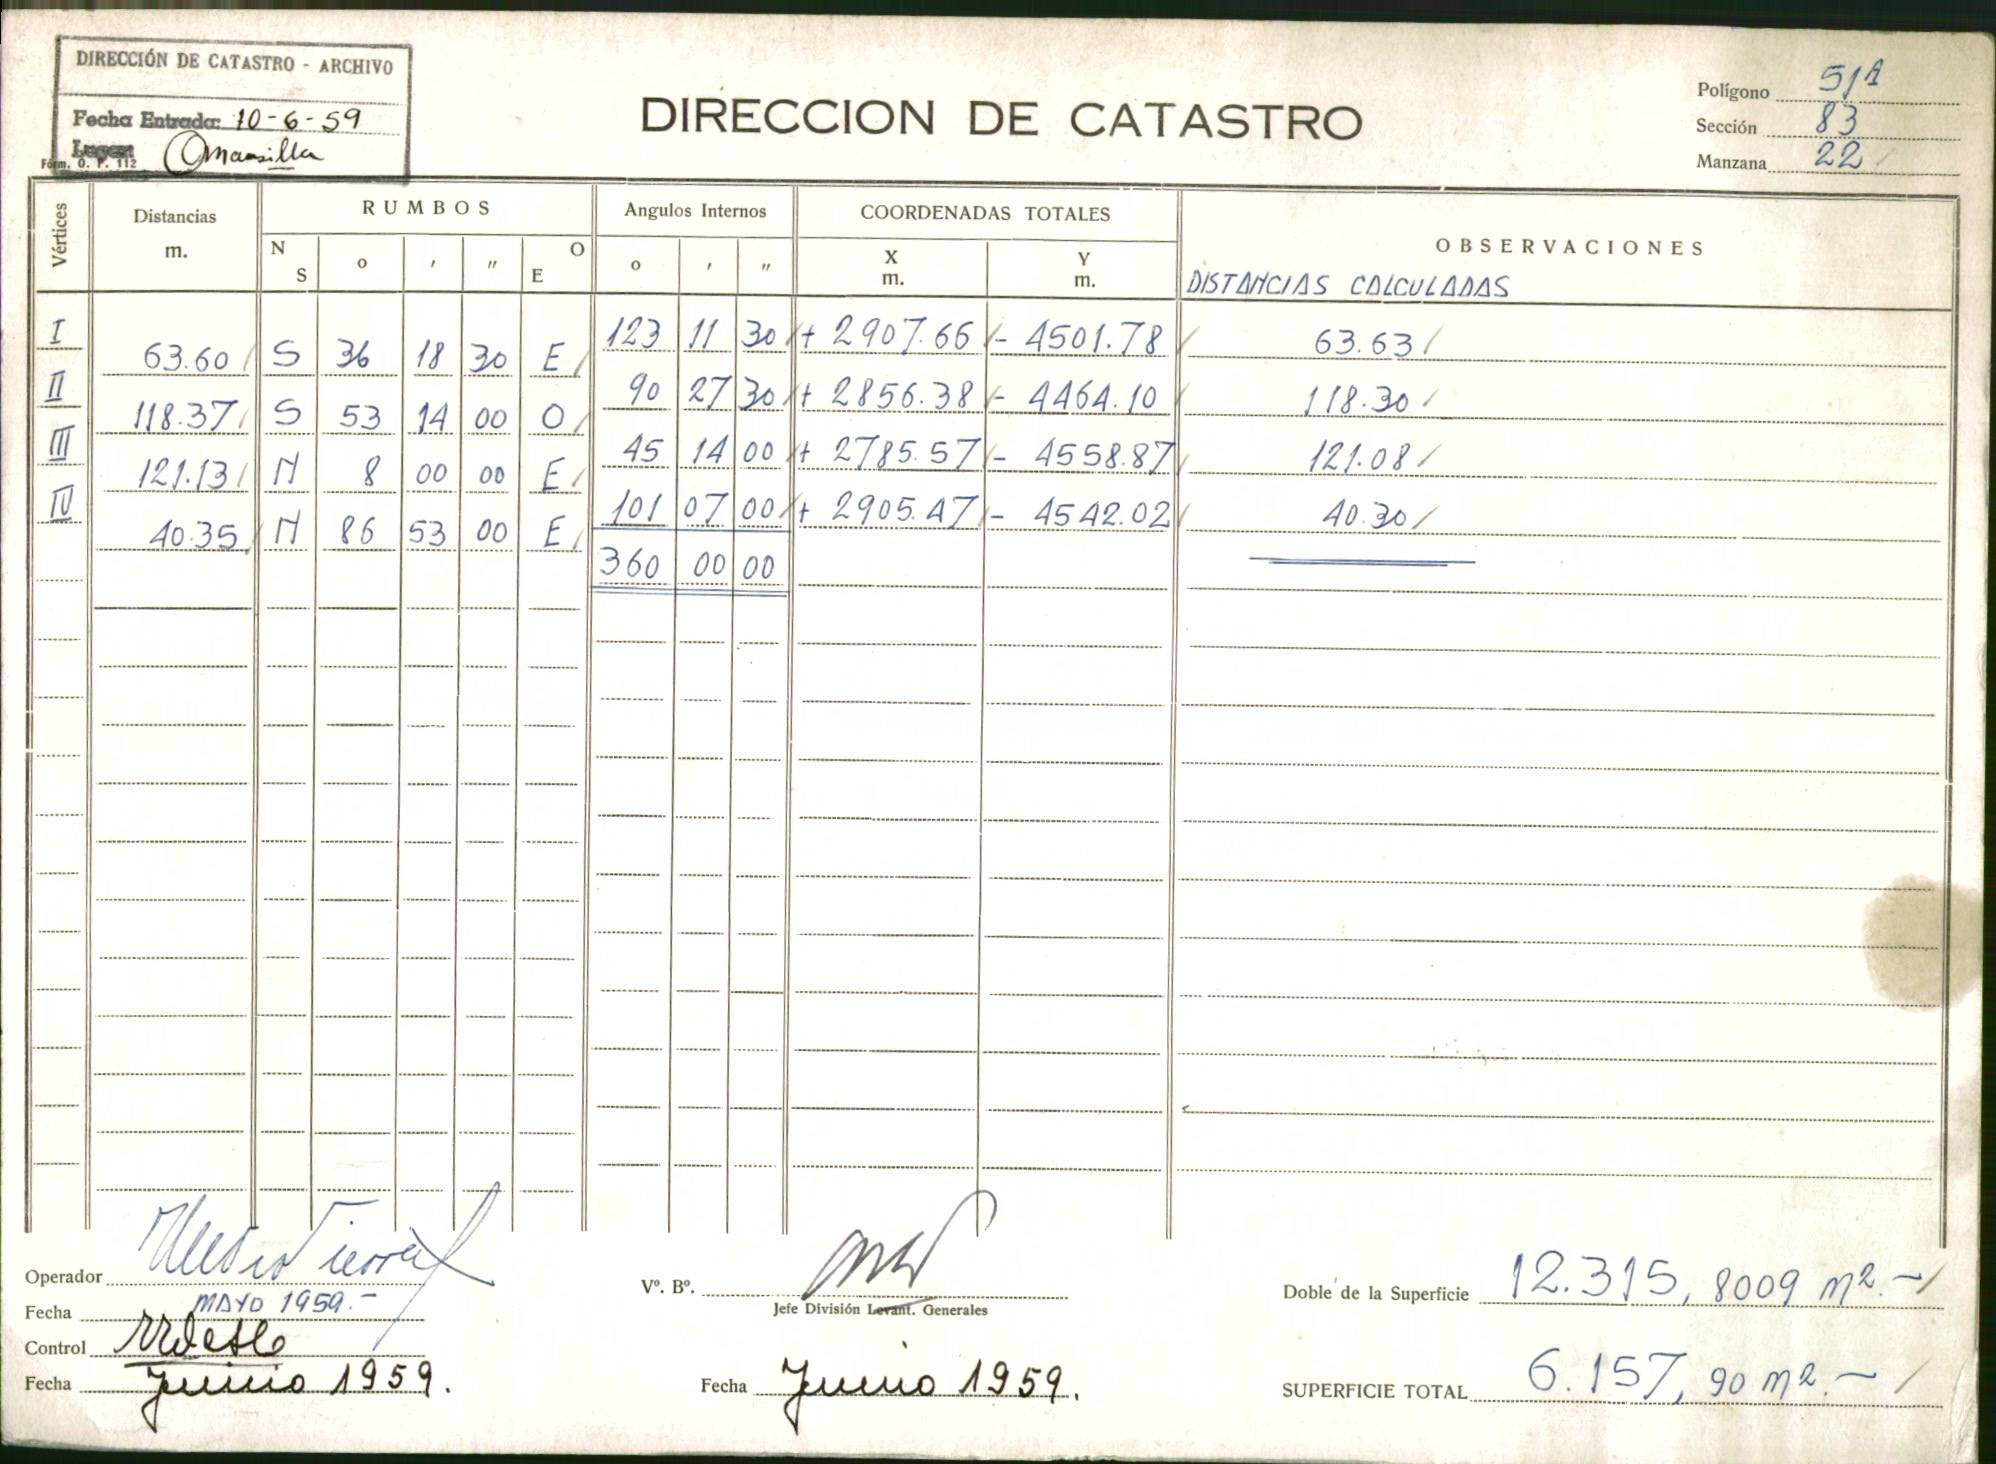 DIRECCIÓN DE CATASTRO - ARCHIVO
Fecha Entrada: 10-6-59
Mansilla
Fórm. O. P. 112
DIRECCION DE CATASTRO
Polígono 51A
Sección 83
Manzana 22
Vértices Distancias m. RUMBOS N S o ' " O E Angulos Internos o ' " COORDENADAS TOTALES X m. Y m. OBSERVACIONES
DISTANCIAS CALCULADAS
I 63.60 S 36 18 30 E 123 11 30 + 2907.66 - 4501.78 63.63
II 118.37 S 53 14 00 O 90 27 30 + 2856.38 - 4464.10 118.30
III 121.13 N 8 00 00 E 45 14 00 + 2785.57 - 4558.87 121.08
IV 40.35 N 86 53 00 E 101 07 00 + 2905.47 - 4542.02 40.30
360 00 00
Operador
Fecha MAYO 1959.-
Control
Fecha Junio 1959.
Vº. Bº.
Jefe División Levant. Generales
Fecha Junio 1959.
Doble de la Superficie 12.315,8009 m2.-
SUPERFICIE TOTAL 6.157,90 m2.-